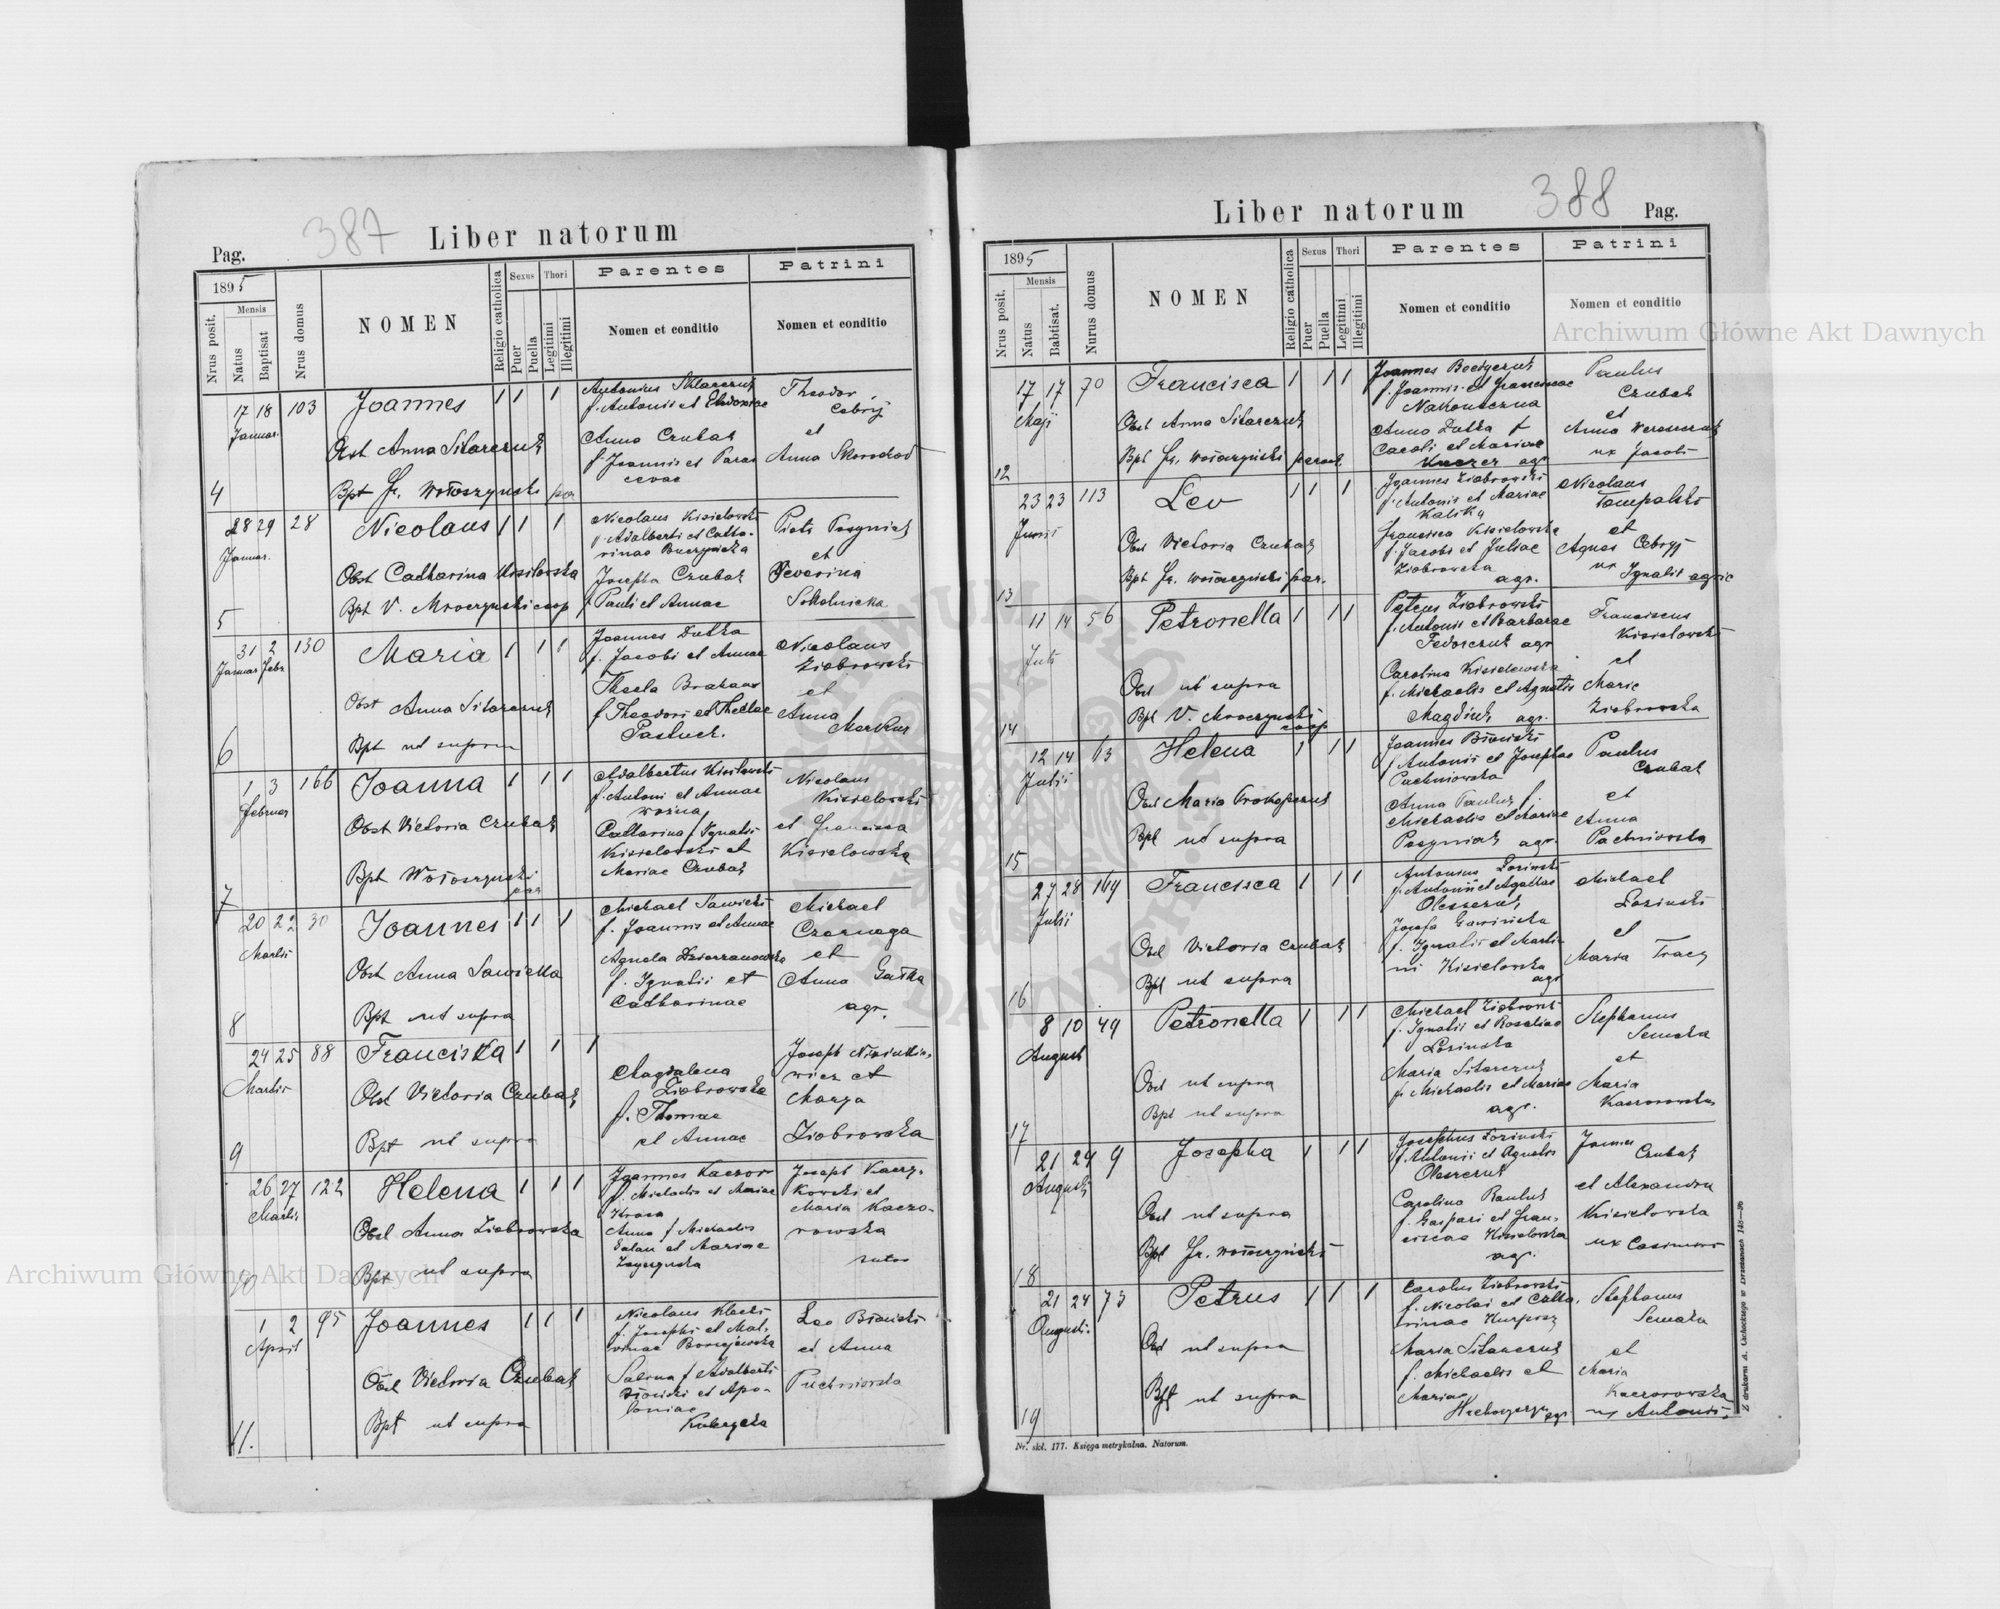 387
Liber natorum
Pag.
1895
Mensis
Nrus posit.
Natus
Baptisat
Nrus domus
NOMEN
Religio catholica
Sexus
Puer
Puella
Thori
Legitimi
Illegitimi
Parentes
Nomen et conditio
Patrini
Nomen et conditio
4
17 18 103 Joannes 1 1 1
Januar.
Obst Anna Sitarczuk
Bpt Fr. Wołoszynski par
f. Antonii et
Anna Czubak
f. Joannis et Paras
cevae
Theodor
Cebryj
et
Anna
5
28 29 28 Nicolaus 1 1 1
Januar.
Obst Catharina Kisilowska
Bpt V. Mroczynski coop
Nicolaus Kisielowski
f. Adalberti et Catha-
rinae
Josepha Czubak
f Pauli et Annae
Piotr Posyniak
et
Severina
Sokolnicka
6
31 2 130 Maria 1 1 1
Januar Febr
Obst Anna Sitarczuk
Bpt ut supra
Joannes Dutka
f. Jacobi et Annae
Thecla
f Theodori et Theclae
Pastuch.
Nicolaus
Ziobrowski
et
Anna
7
1 3 166 Joanna 1 1 1
Februar
Obst Victoria Czubak
Bpt Wołoszynski
par
Adalbertus Kisilowski
f. Antoni et Annae
Catharina f Ignatii
Kisielowski et
Mariae Czubak
Nicolaus
Kisielowski
et Francisca
Kisielowska
8
20 22 30 Joannes 1 1 1
Martii
Obst Anna Sawicka
Bpt ut supra
Michael Sawicki
f. Joannis et Annae
Agnela Dzierzanowska
f. Ignatii et
Catharinae
Michael
Czarnega
et
Anna Gałka
agr.
9
24 25 88 Franciska 1 1 1
Martii
Obst Victoria Czubak
Bpt ut supra
Magdalena
Ziobrowska
f. Thomae
et Annae
Joseph
wicz et
Marya
Ziobrowska
10
26 27 122 Helena 1 1 1
Martii
Obst Anna Ziobrowska
Bpt ut supra
Joannes Kaczor
f. Michaelis et Mariae
Anna f Michaelis
et Mariae
Joseph Kacz-
kowski et
Maria Kaczo-
rowska
sutor
11.
1 2 95 Joannes 1 1 1
April
Obst Victoria Czubak
Bpt ut supra
Nicolaus
f. Josephi et Mat-
Salena f Adalberti
Błoński et Apo-
loniae
Leo Błoński
et Anna
Puchniowska
388
Liber natorum
Pag.
1895
Mensis
Nrus posit.
Natus
Babtisat.
Nurus domus
NOMEN
Religio catholica
Sexus
Puer
Puella
Thori
Legitimi
Illegitimi
Parentes
Nomen et conditio
Patrini
Nomen et conditio
12
17 17 70 Francisca 1 1 1
Maji
Obst Anna Sitarczuk
Bpt Fr. Wołoszyński paroch.
f. Joannis et Franciscae
Nakoneczna
Anna Dutka f
Caroli et Mariae
agr
Paulus
Czubak
et
Anna
ux Jacobi
13
23 23 113 Leo 1 1 1
Junii
Obst Victoria Czubak
Bpt Fr. Wołoszyński par.
Joannes Ziobrowski
f. Antonii et Mariae
Francisca Kisielowska
f. Jacobi et Juliae
Ziobrowska
agr.
Nicolaus
Tompalski
et
Agnes Cebryj
ux Ignatii agric
14
11 14 56 Petronella 1 1 1
Juli
Obst ut supra
Bpt V. Mroczynski
coop
Petrus Ziobrowski
f. Antonii et Barbarae
Fedorczuk agr
Carolina Kisielowska
f. Michaelis et Agnetis
Magdiuk agr.
Franciscus
Kisielowski
et
Marie
Ziobrowska
15
12 14 63 Helena 1 1 1
Julii
Obst Maria Prokopczuk
Bpt ut supra
Joannes Błoński
f Antonii et Josephae
Puchniowska
Anna Pauluk f.
Michaelis et Mariae
Posyniak agr.
Paulus
Czubak
et
Anna
Puchniowska
16
27 28 164 Francisca 1 1 1
Julii
Obst Victoria Czubak
Bpt ut supra
Antonius Łoziński
f. Antonii et Agathae
Oleszczuk
Josefa
f. Ignatii et Marti-
ni Kisielowska
agr
Michael
Łoziński
et
Maria Tracz
17
8 10 49 Petronella 1 1 1
August
Obst ut supra
Bpt ut supra
Michael Ziobrowski
f. Ignatii et Rosaliae
Łozinska
Maria Sitarczuk
f. Michaelis et Mariae
agr.
Stephanus
Semaka
et
Maria
Kaczorowska
18
21 24 9 Josepha 1 1 1
Augusti
Obst ut supra
Bpt Fr. Wołoszyński
Josephus Łozinski
f. Antonii et Agnetis
Oleszczuk
Carolina Pauluk
f. Gaspari et Fran-
ciscae Kisielowska
agr.
Joannes
Czubak
et Alexandra
Kisielowska
ux Casimiri
19
21 24 73 Petrus 1 1 1
Augusti.
Obst ut supra
Bpt ut supra
Carolus Ziobrowski
f. Nicolai et Catha-
rinae
Maria Sitarczuk
f. Michaelis et
Mariae
agr.
Stephanus
Semaka
et
Maria
Kaczorowska
ux Antonii.
Nr. skł. 177. Księga metrykalna. Natorum.
Archiwum Główne Akt Dawnych
Archiwum Główne Akt Dawnych